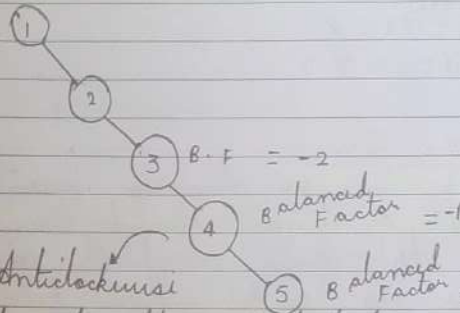 1
2
3 B.F = -2
4 Balanced Factor = -1
Anticlockwise
5 Balanced Factor